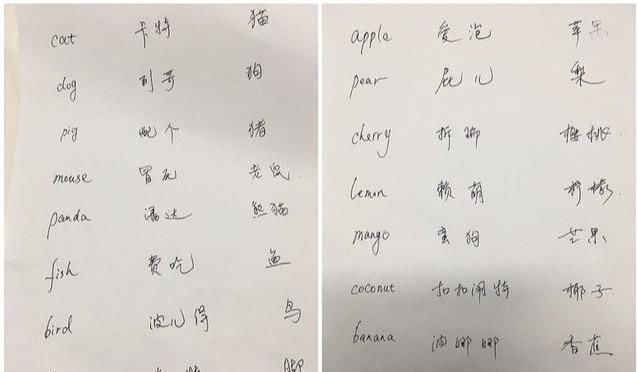 cat 卡特 猫
dog 到哥 狗
pig 配个 猪
mouse 冒死 老鼠.
panda 潘达 熊猫
fish 费吃 鱼
bird 波儿得 鸟
apple 爱泡 苹果
pear 屁儿 梨
cherry 拆脚 樱桃.
lemon 赖萌 柠檬.
mango 蛮狗 芒果
coconut 扣扣闹特 椰子.
banana 波娜娜 香蕉